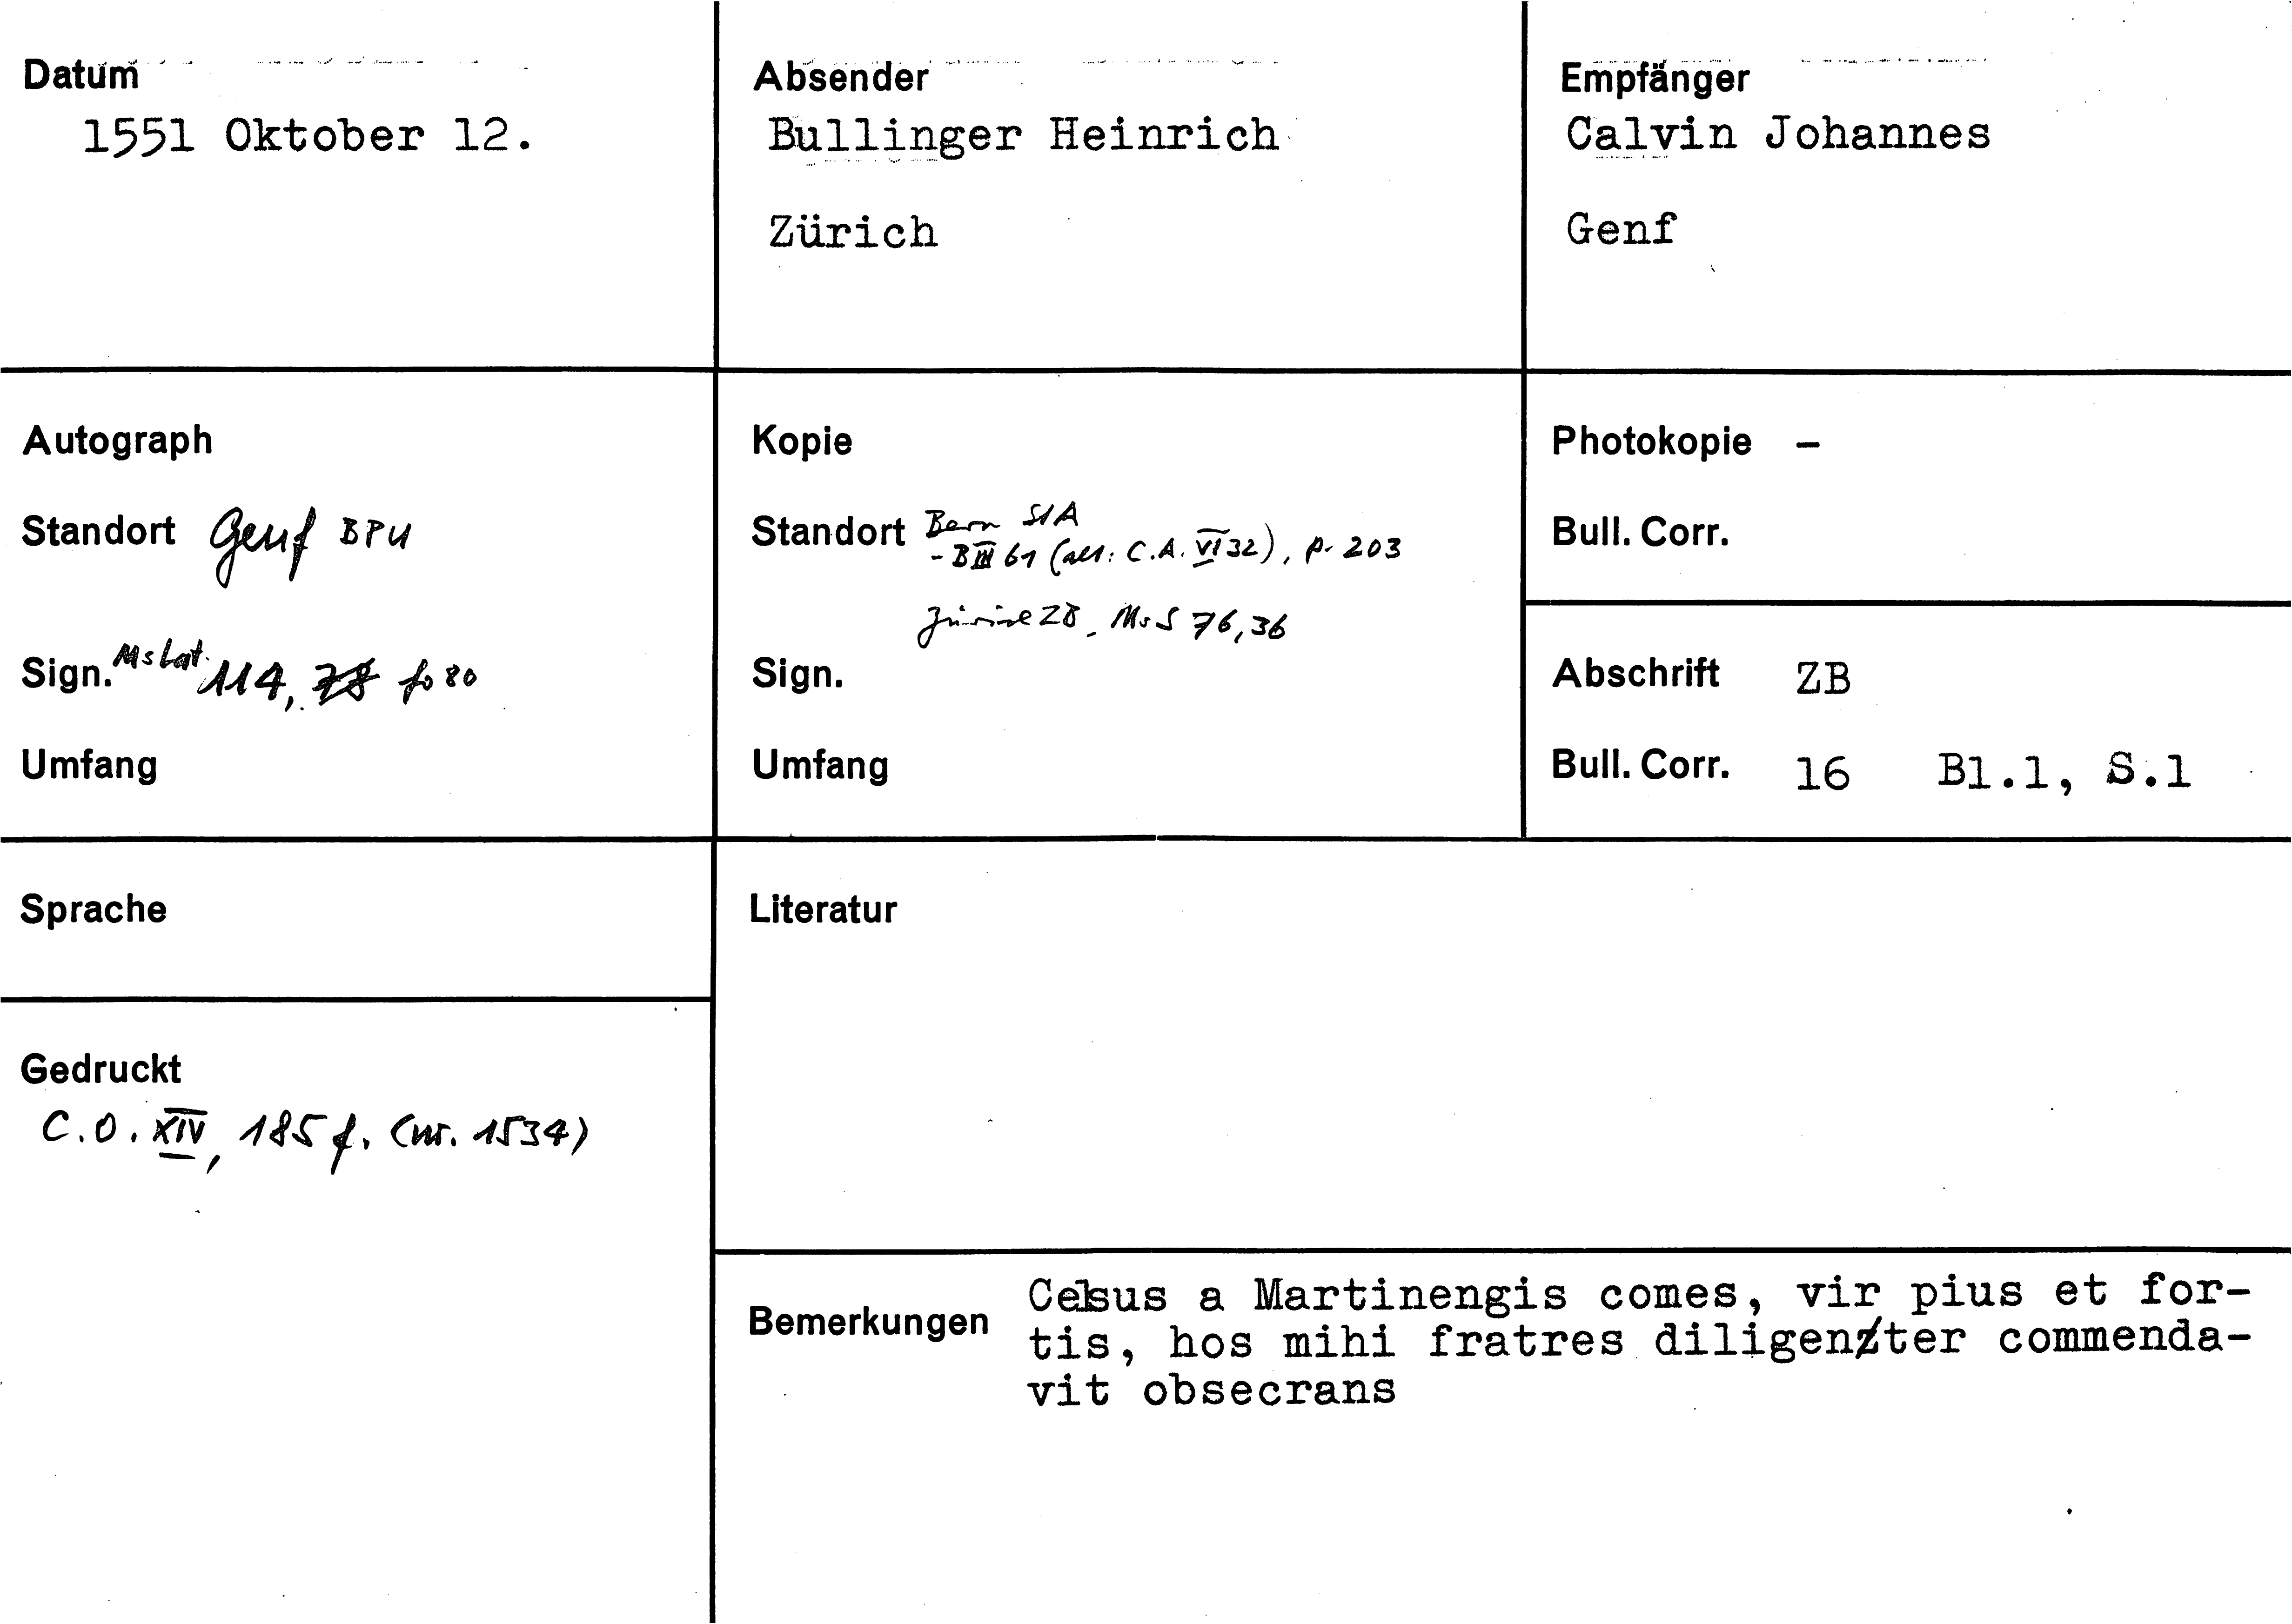 Datum
1551 Oktober 12.
Absender
Bullinger Heinrich
Zürich
Empfänger
Calvin Johannes
Genf
Autograph
Standort Genf BPU
Sign. Ms Lat. 114, 78 fo 80
Umfang
Kopie
Standort Bern StA
- B III 61 (alt: C.A. VI 32), p. 203
Zürich ZB, Ms S 76, 36
Sign.
Umfang
Photokopie –
Bull. Corr.
Abschrift ZB
Bull. Corr. 16 Bl.1, S.1
Sprache
Gedruckt
C.O. XIV, 185 f. (nr. 1534)
Literatur
Bemerkungen
Celsus a Martinengis comes, vir pius et for-
tis, hos mihi fratres diligenter commenda-
vit obsecrans